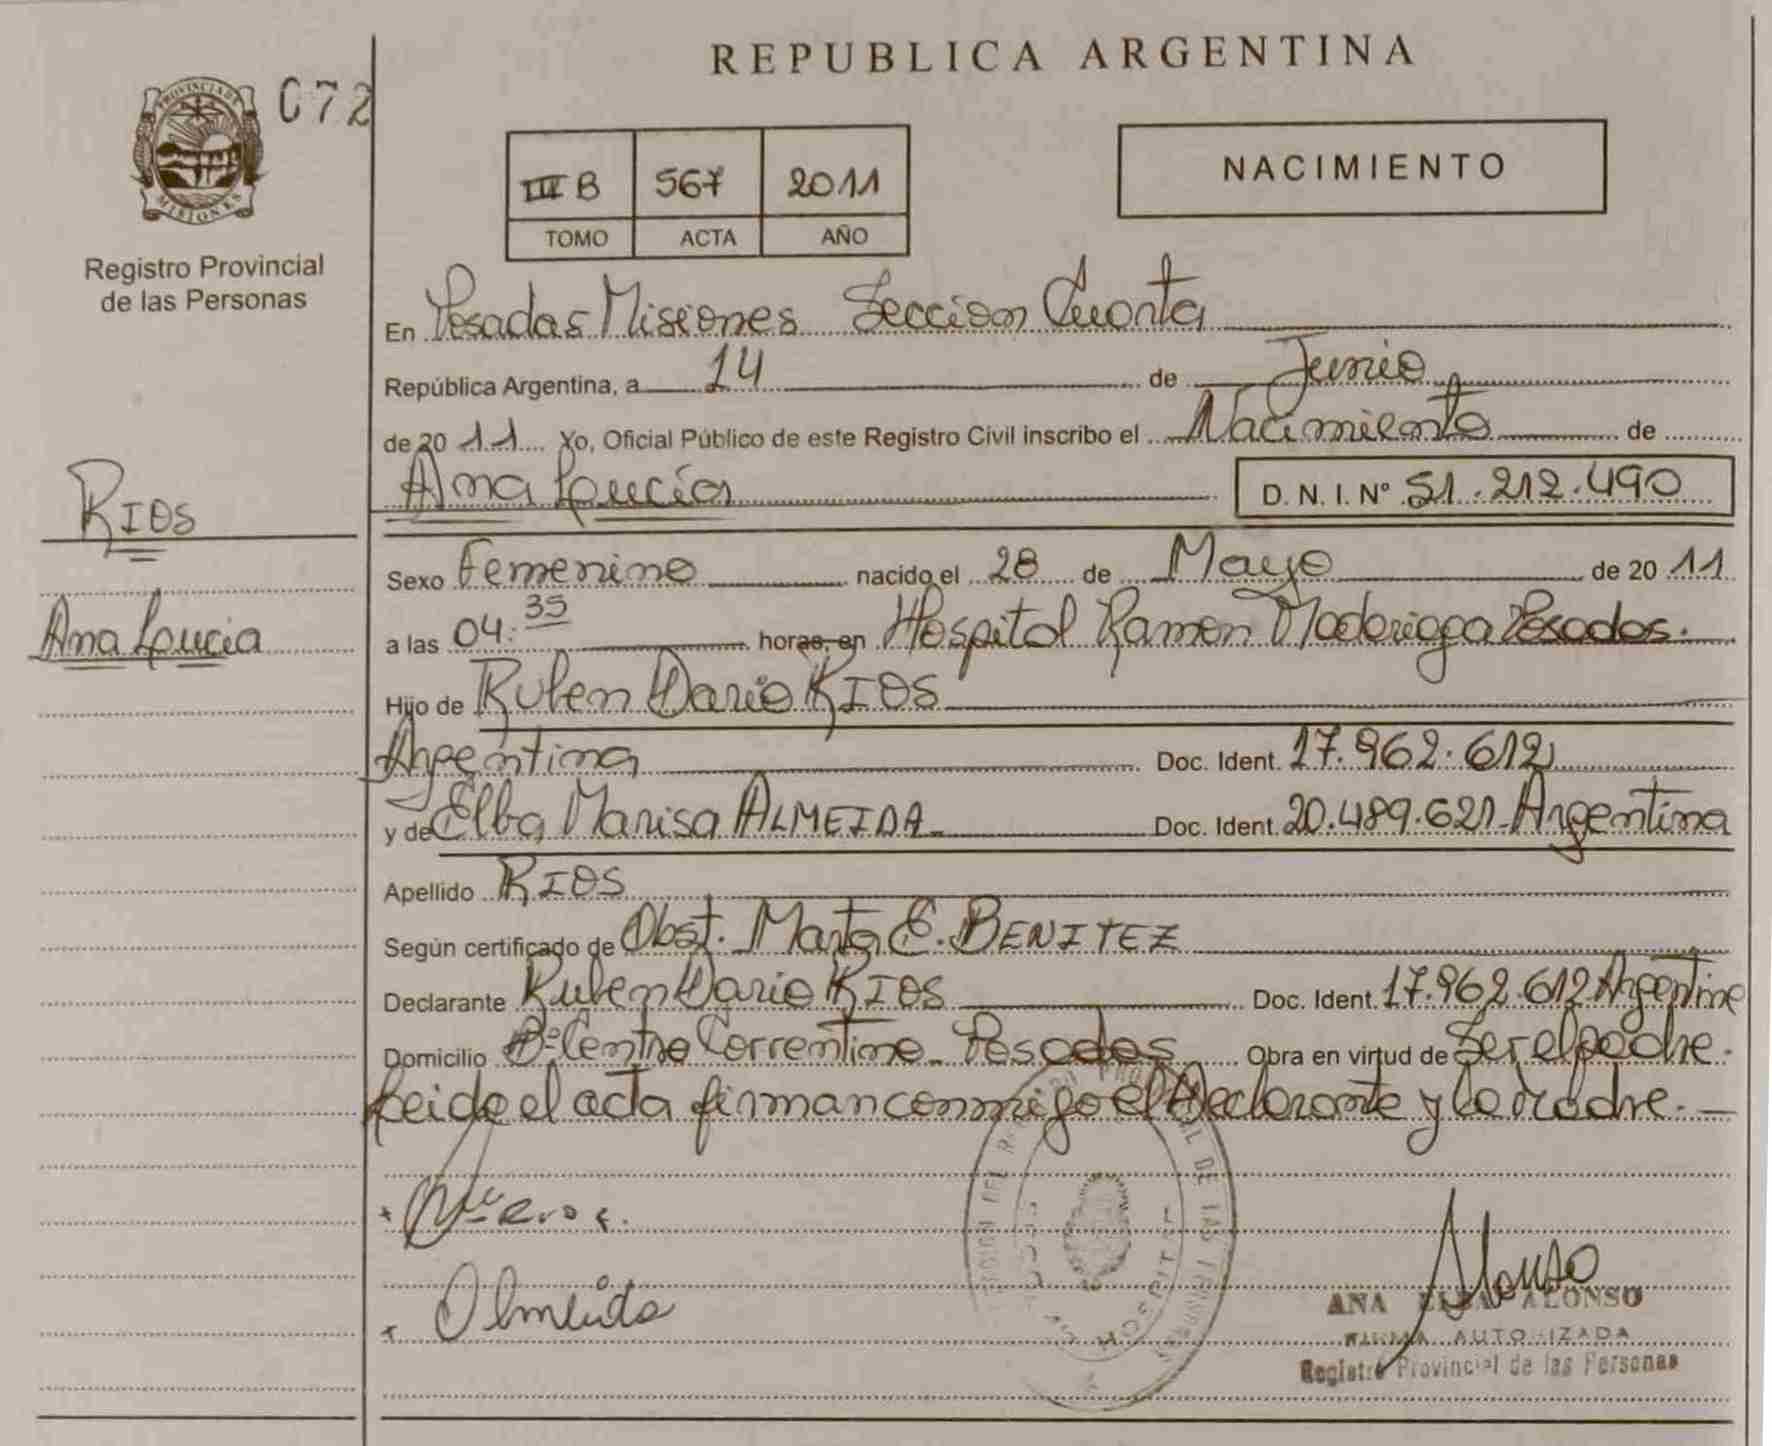 REPUBLICA ARGENTINA
PROVINCIA DE
MISIONES
072
Registro Provincial
de las Personas
III B 567 2011
TOMO ACTA AÑO
NACIMIENTO
En Posadas Misiones Seccion Cuarta
República Argentina, a 14 de Junio
de 2011 Yo, Oficial Público de este Registro Civil inscribo el Nacimiento de
Ana Lucía D. N. I. Nº 51.212.490
RIOS
Ana Lucia
Sexo Femenino nacido el 28 de Mayo de 2011
a las 04:35 horas, en Hospital Ramon Madariaga Posadas.
Hijo de Ruben Dario RIOS
Argentina Doc. Ident. 17.962.612
y de Elba Marisa ALMEIDA Doc. Ident. 20.489.621- Argentina
Apellido RIOS
Según certificado de Obst. Marta E. BENITEZ
Declarante Ruben Dario RIOS Doc. Ident. 17.962.612 Argentina
Domicilio Bº Centro Correntino - Posadas Obra en virtud de Ser el padre.
Leido el acta firman conmigo el Declarante y la Madre.-
Almeida
Alonso
ANA ELBA ALONSO
FIRMA AUTORIZADA
Registro Provincial de las Personas